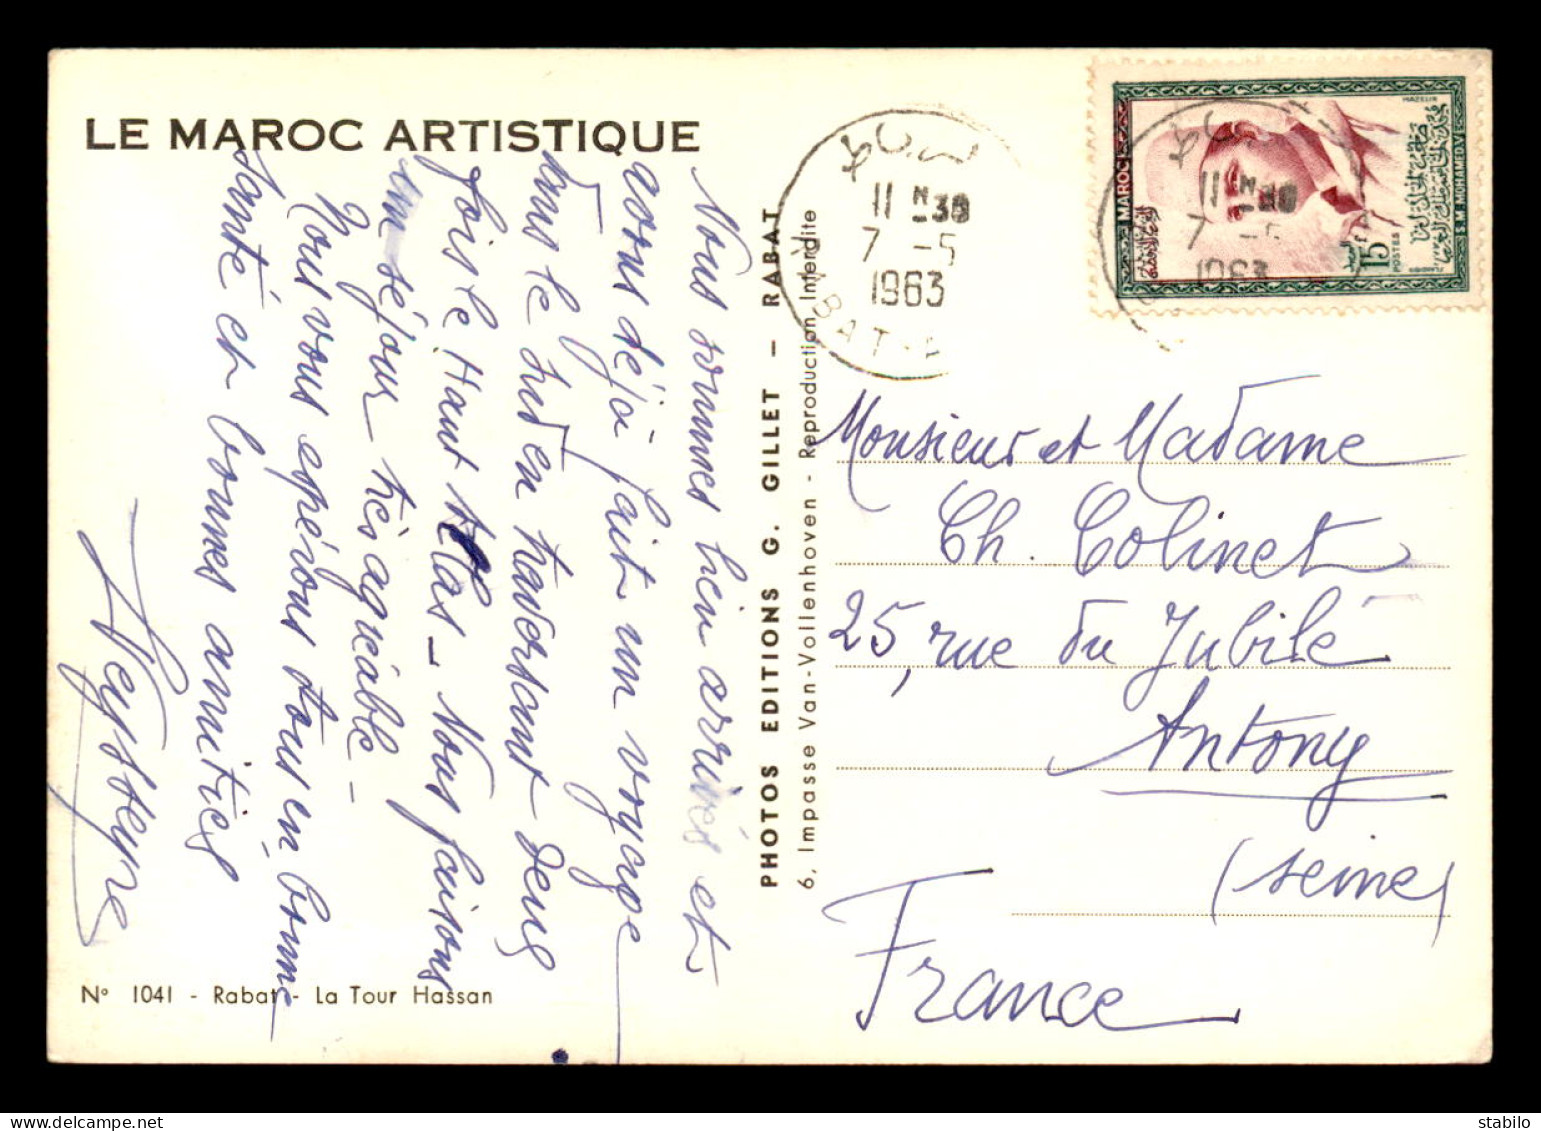 LE MAROC ARTISTIQUE
Nous sommes bien arrivés et
avons déjà fait un voyage
dans le Sud en traversant deux
fois le Haut Atlas - Nous faisons
un séjour très agréable -
Nous vous espérons tous en bonne
santé et bonnes amitiés
N° 1041 - Rabat - La Tour Hassan
PHOTOS EDITIONS G. GILLET - RABAT
6, Impasse Van-Vollenhoven - Reproduction Interdite
11 H -30
7 -5
1963
RABAT
MAROC
15
POSTES
S.M. MOHAMED V
MAZELIN
Monsieur et Madame
Ch. Colinet
25, rue du Jubilé
Antony
(Seine)
France
stabilo
delcampe.net